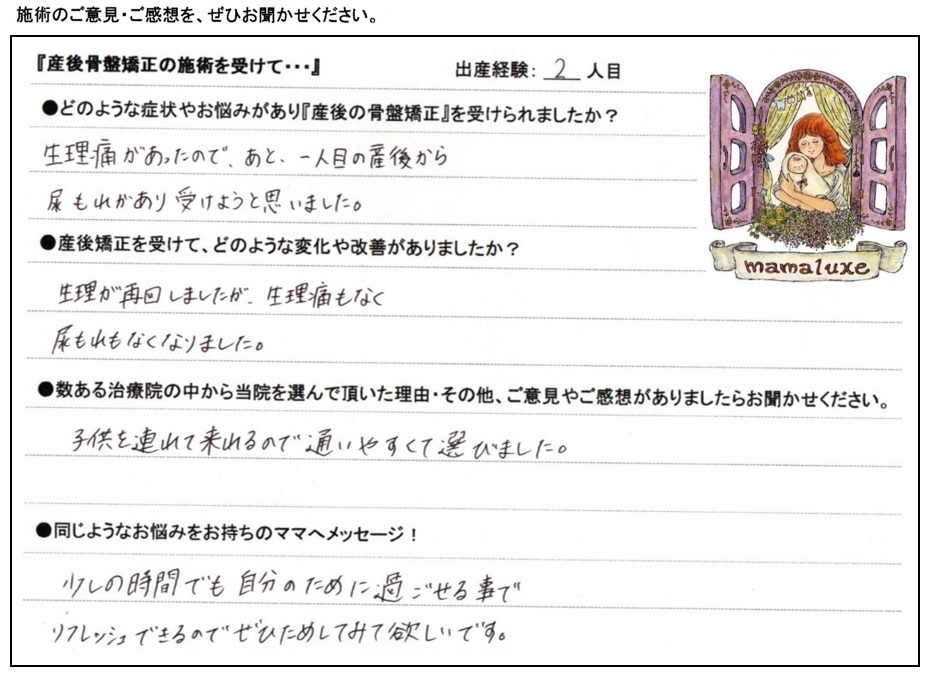 施術のご意見・ご感想を、ぜひお聞かせください。
『産後骨盤矯正の施術を受けて・・・』 出産経験： 2 人目
●どのような症状やお悩みがあり『産後の骨盤矯正』を受けられましたか？
生理痛があったので、あと、一人目の産後から
尿もれがあり受けようと思いました。
●産後矯正を受けて、どのような変化や改善がありましたか？
mamaluxe
生理が再回しましたが、生理痛もなく
尿もれもなくなりました。
●数ある治療院の中から当院を選んで頂いた理由・その他、ご意見やご感想がありましたらお聞かせください。
子供を連れて来れるので通いやすくて選びました。
●同じようなお悩みをお持ちのママへメッセージ！
少しの時間でも自分のために過ごせる事で
リフレッシュできるのでぜひためしてみて欲しいです。